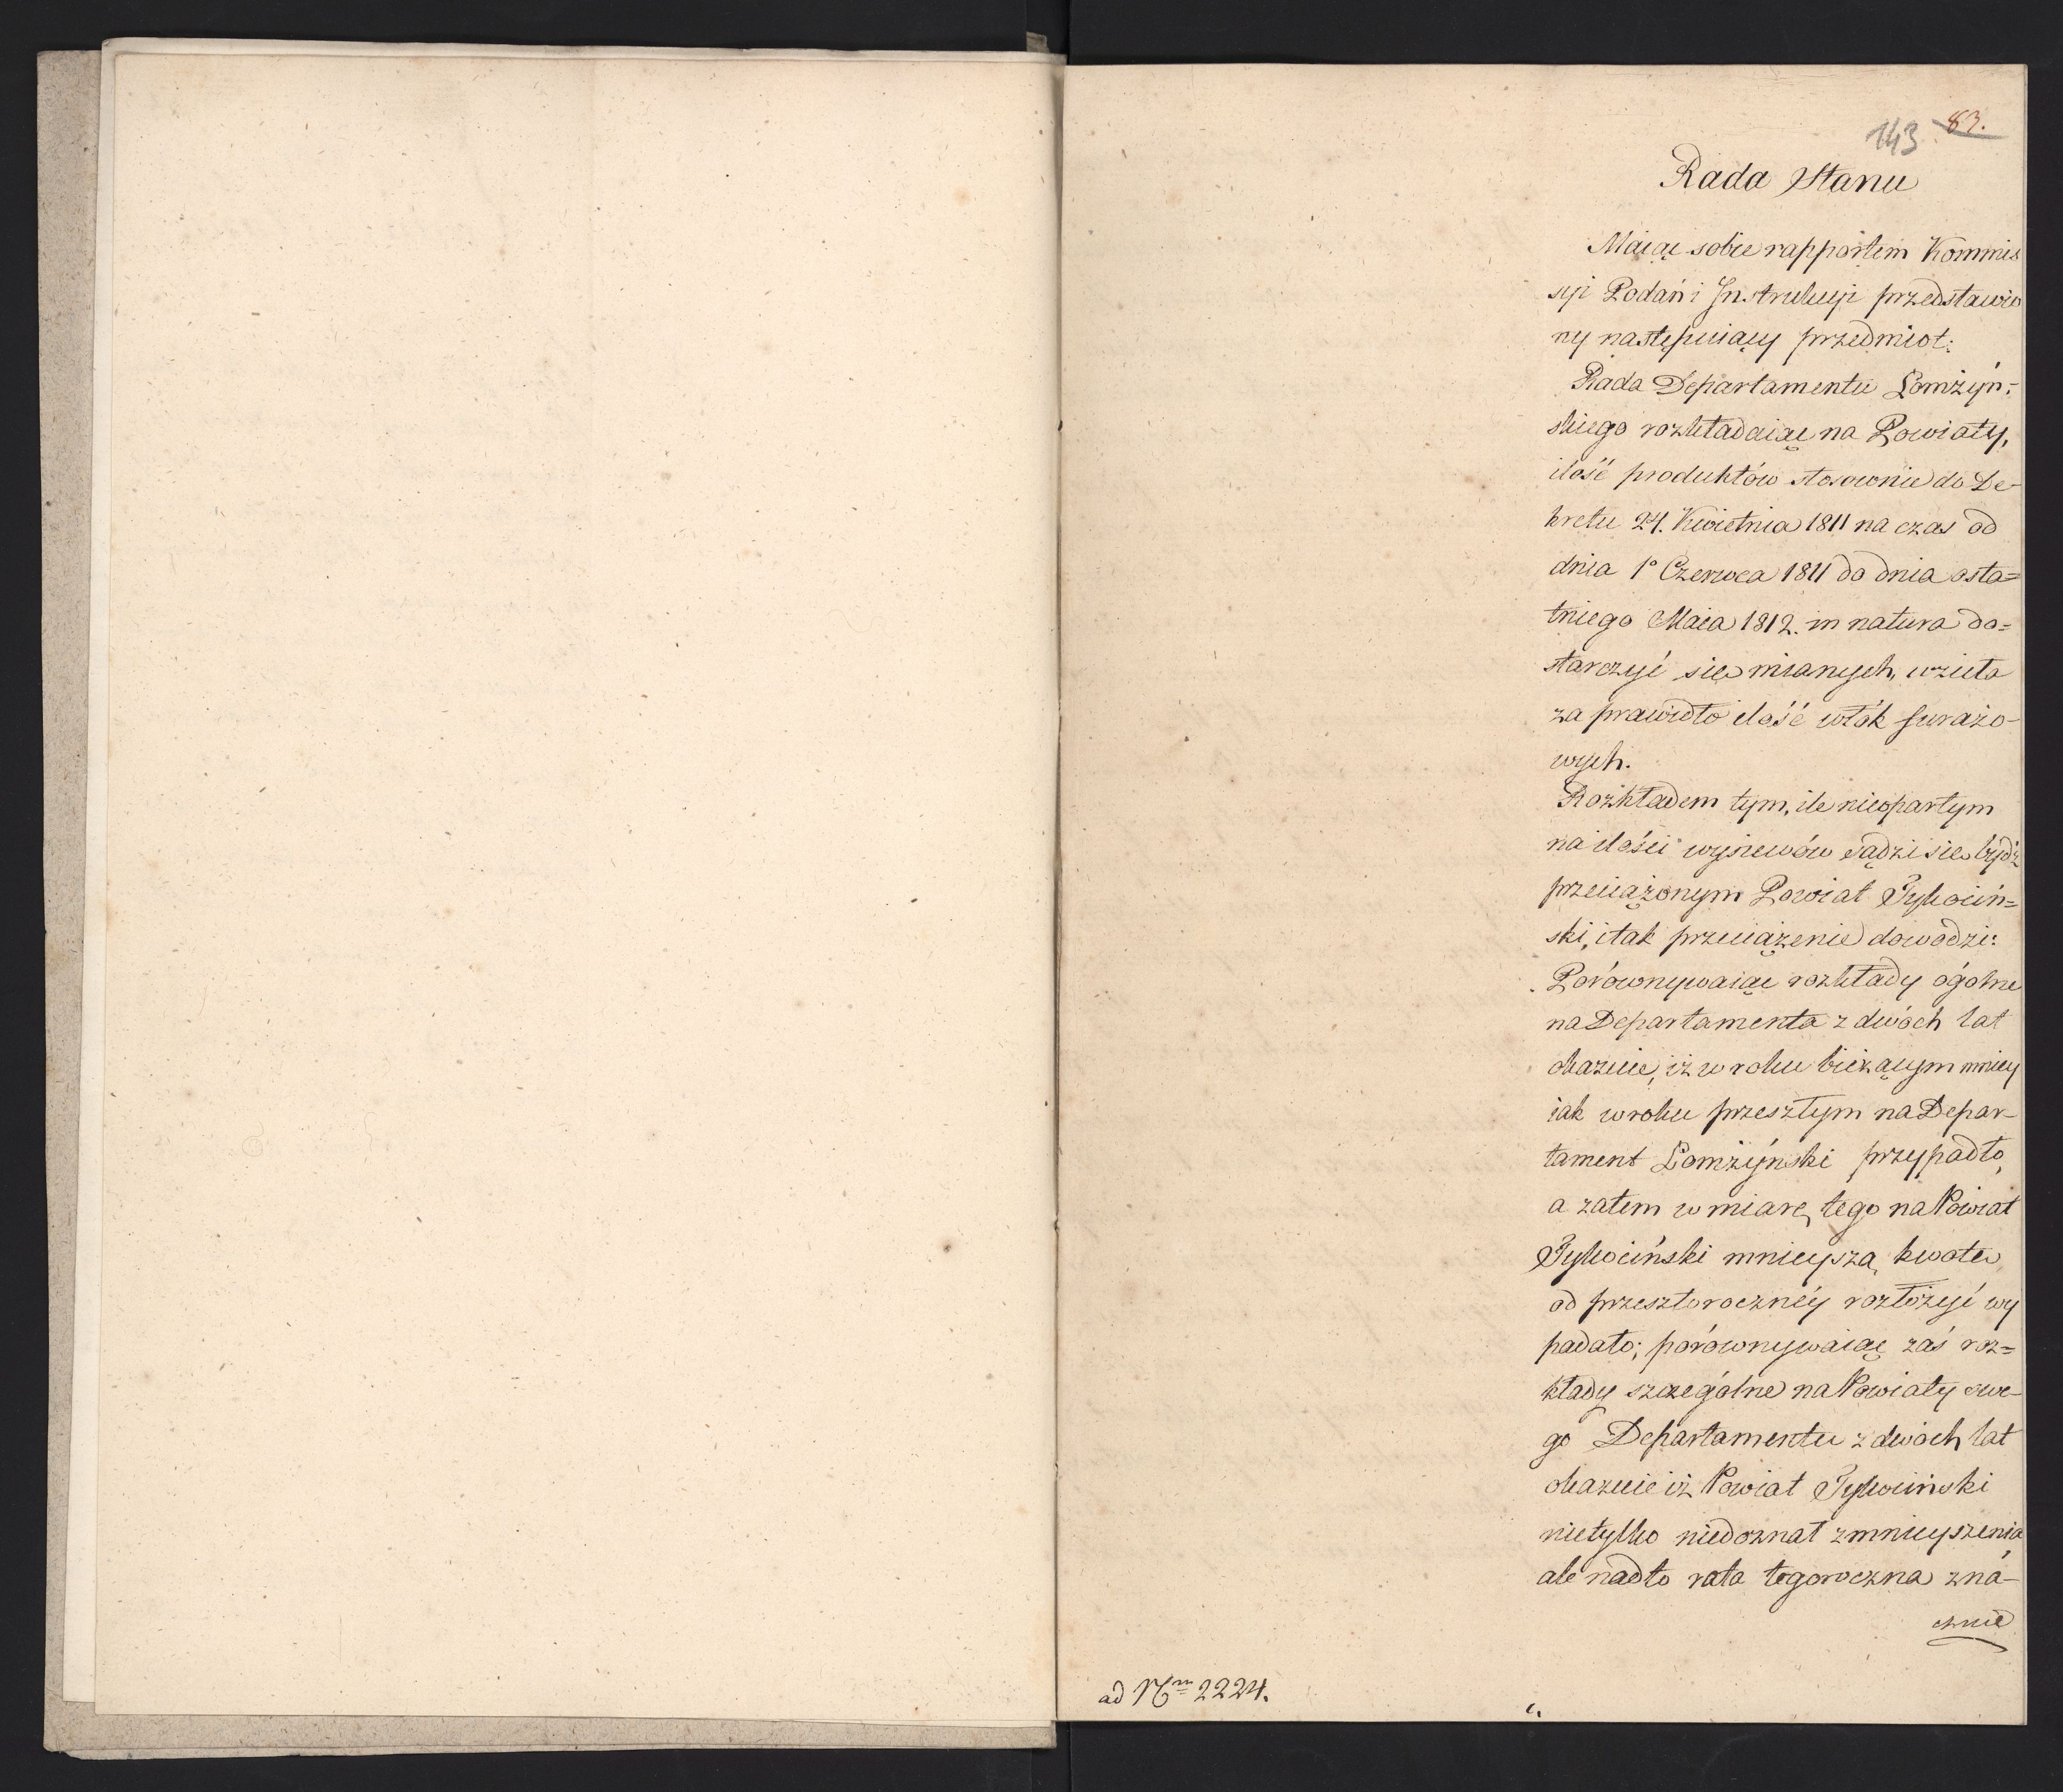 143 83.
Rada Stanu
Maiąc sobie rapportem Kommis
syi Podań i Instrukcyi przedstawio
ny następuiący przedmiot:
Rada Departamentu Łomżyń-
skiego rozkładaiąc na Powiaty,
ilość produktów stosownie do De-
kretu 24. Kwietnia 1811 na czas od
dnia 1° Czerwca 1811 do dnia osta=
tniego Maia 1812. in natura do=
starczyć się mianych, wzieła
za prawidło ilość włók furażo-
wych.
Rozkładem tym, ile nieopartym
na ilości wysiewów sądzi się bydź
przeciążonym Powiat Tykociń=
ski, i tak przeciążenie dowodzi:
Porównywaiąc rozkłady ogólne
na Departamenta z dwóch lat
okazuie, iż w roku bieżącym mniey
iak w roku przeszłym na Depar-
tament Łomżyński przypadło,
a zatem w miarę tego na Powiat
Tykociński mnieyszą kwotę
od przeszłorocznéy rozłożyć wy
padało; porównywaiąc zaś roz=
kłady szczególne na Powiaty swe-
go Departamentu z dwóch lat
okazuie iż Powiat Tykociński
nietylko niedoznał zmnieyszenia
ale nadto rata tegoroczna zna-
cznie
ad Nrm 2224.